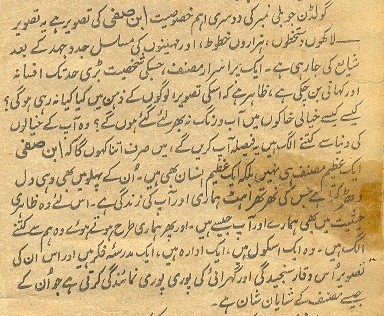 گولڈن جوبلی نمبر کی دوسری اہم خصوصیت ابن صفی کی تصویر ہے یہ تصویر
لاکھوں دستخطوں، ہزاروں خطوط، اور مہینوں کی مسلسل جدوجہد کے بعد
شایع کی جا رہی ہے۔ ایک پراسرار مصنف، جسکی شخصیت بڑی حد تک افسانہ
اور کہانی بن چکی ہے، ظاہر ہے کہ اسکی تصویر، لوگوں کے ذہن میں کیا کیا نہ رہی ہوگی؟
کیسے کیسے خیالی خاکوں میں آب و رنگ نہ بھر لئے گئے ہوں گے؟ وہ آپ کے خیالوں
کی دنیا سے کتنے الگ ہیں یہ فیصلہ آپ کریں گے، میں صرف اتنا کہوں گا کہ ابن صفی
ایک عظیم مصنف ہی نہیں بلکہ ایک عظیم انسان بھی ہیں۔ اُن کے پہلو میں بھی وہی دل
دھڑکتا ہے جس کی تھرتھراہٹ ہماری اور آپ کی زندگی ہے۔ اس لئے وہ ظاہری
حقیقت میں بھی ہمارے اور آپ جیسے ہیں۔ اور پھر ہماری طرح ہوتے ہوئے وہ ہم سے کتنے
الگ ہیں۔ وہ ایک اسکول ہیں، ایک ادارہ ہیں، ایک مدرسۂ فکر ہیں اور اس ان کی
تصویر اُس وقار سنجیدگی اور گہرائی کی پوری پوری نمائندگی کرتی ہے جو اُن کے
جیسے مصنف کے شایان شان ہے۔